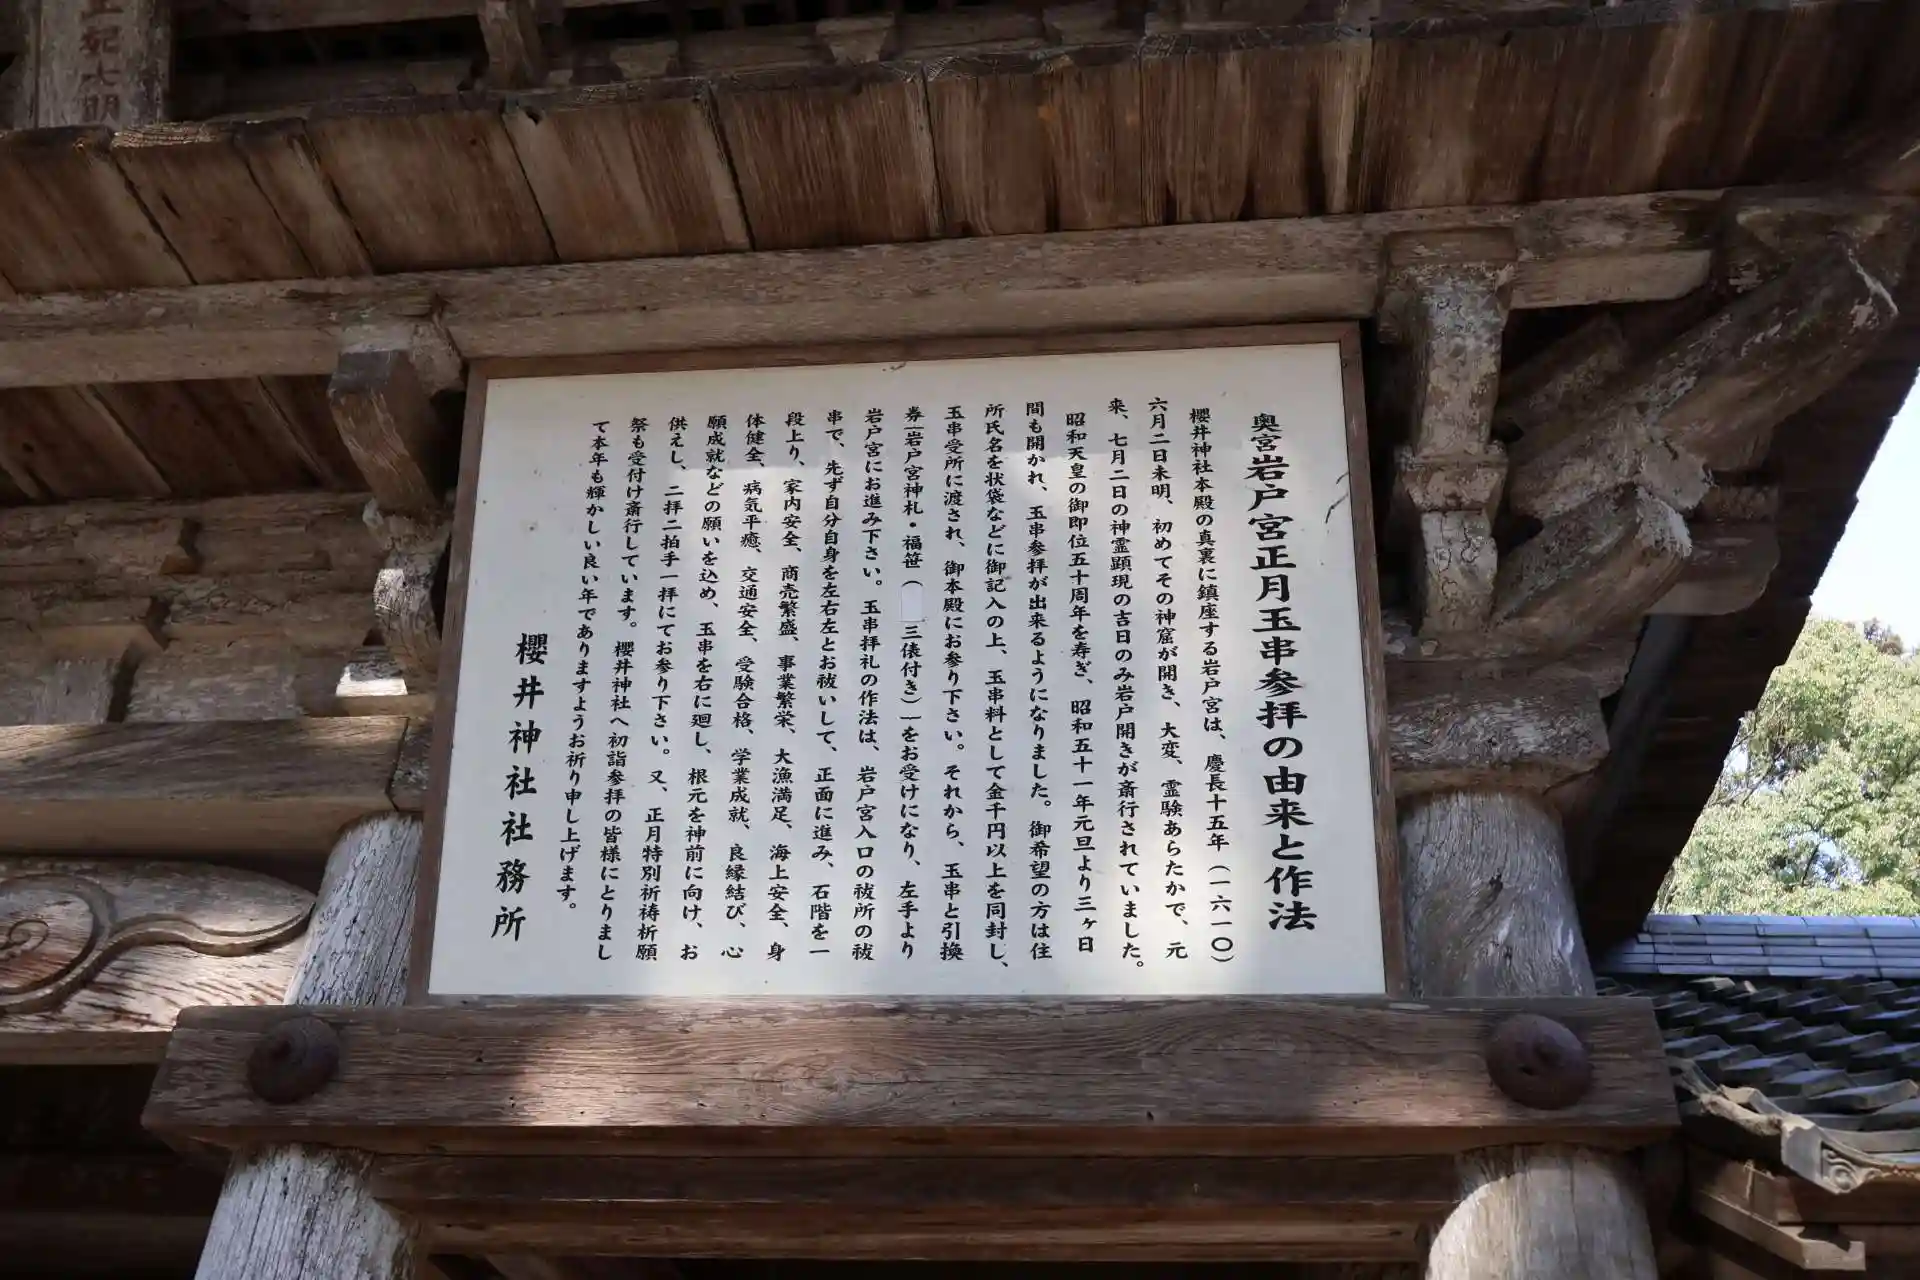 奥宮岩戸宮正月玉串参拝の由来と作法
櫻井神社本殿の真裏に鎮座する岩戸宮は、慶長十五年(一六一〇)
六月二日未明、初めてその神窟が開き、大変、霊験あらたかで、元
来、七月二日の神霊顕現の吉日のみ岩戸開きが斎行されていました。
昭和天皇の御即位五十周年を寿ぎ、昭和五十一年元旦より三ヶ日
間も開かれ、玉串参拝が出来るようになりました。御希望の方は住
所氏名を状袋などに御記入の上、玉串料として金千円以上を同封し、
玉串受所に渡され、御本殿にお参り下さい。それから、玉串と引換
券「岩戸宮神札・福笹( 三俵付き)」をお受けになり、左手より
岩戸宮にお進み下さい。玉串拝礼の作法は、岩戸宮入口の祓所の祓
串で、先ず自分自身を左右左とお祓いして、正面に進み、石階を一
段上り、家内安全、商売繁盛、事業繁栄、大漁満足、海上安全、身
体健全、病気平癒、交通安全、受験合格、学業成就、良縁結び、心
願成就などの願いを込め、玉串を右に廻し、根元を神前に向け、お
供えし、二拝二拍手一拝にてお参り下さい。又、正月特別祈祷祈願
祭も受付け斎行しています。櫻井神社へ初詣参拝の皆様にとりまし
て本年も輝かしい良い年でありますようお祈り申し上げます。
櫻井神社社務所
妃大明